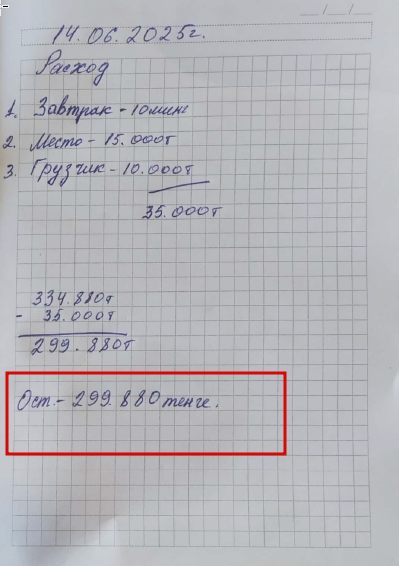 14.06.2025г.
Расход
1. Завтрак - 10 мине
2. Место - 15.000т
3. Грузчик - 10.000т
35.000т
334.880т
- 35.000т
299.880т
Ост. - 299.880 тенге.